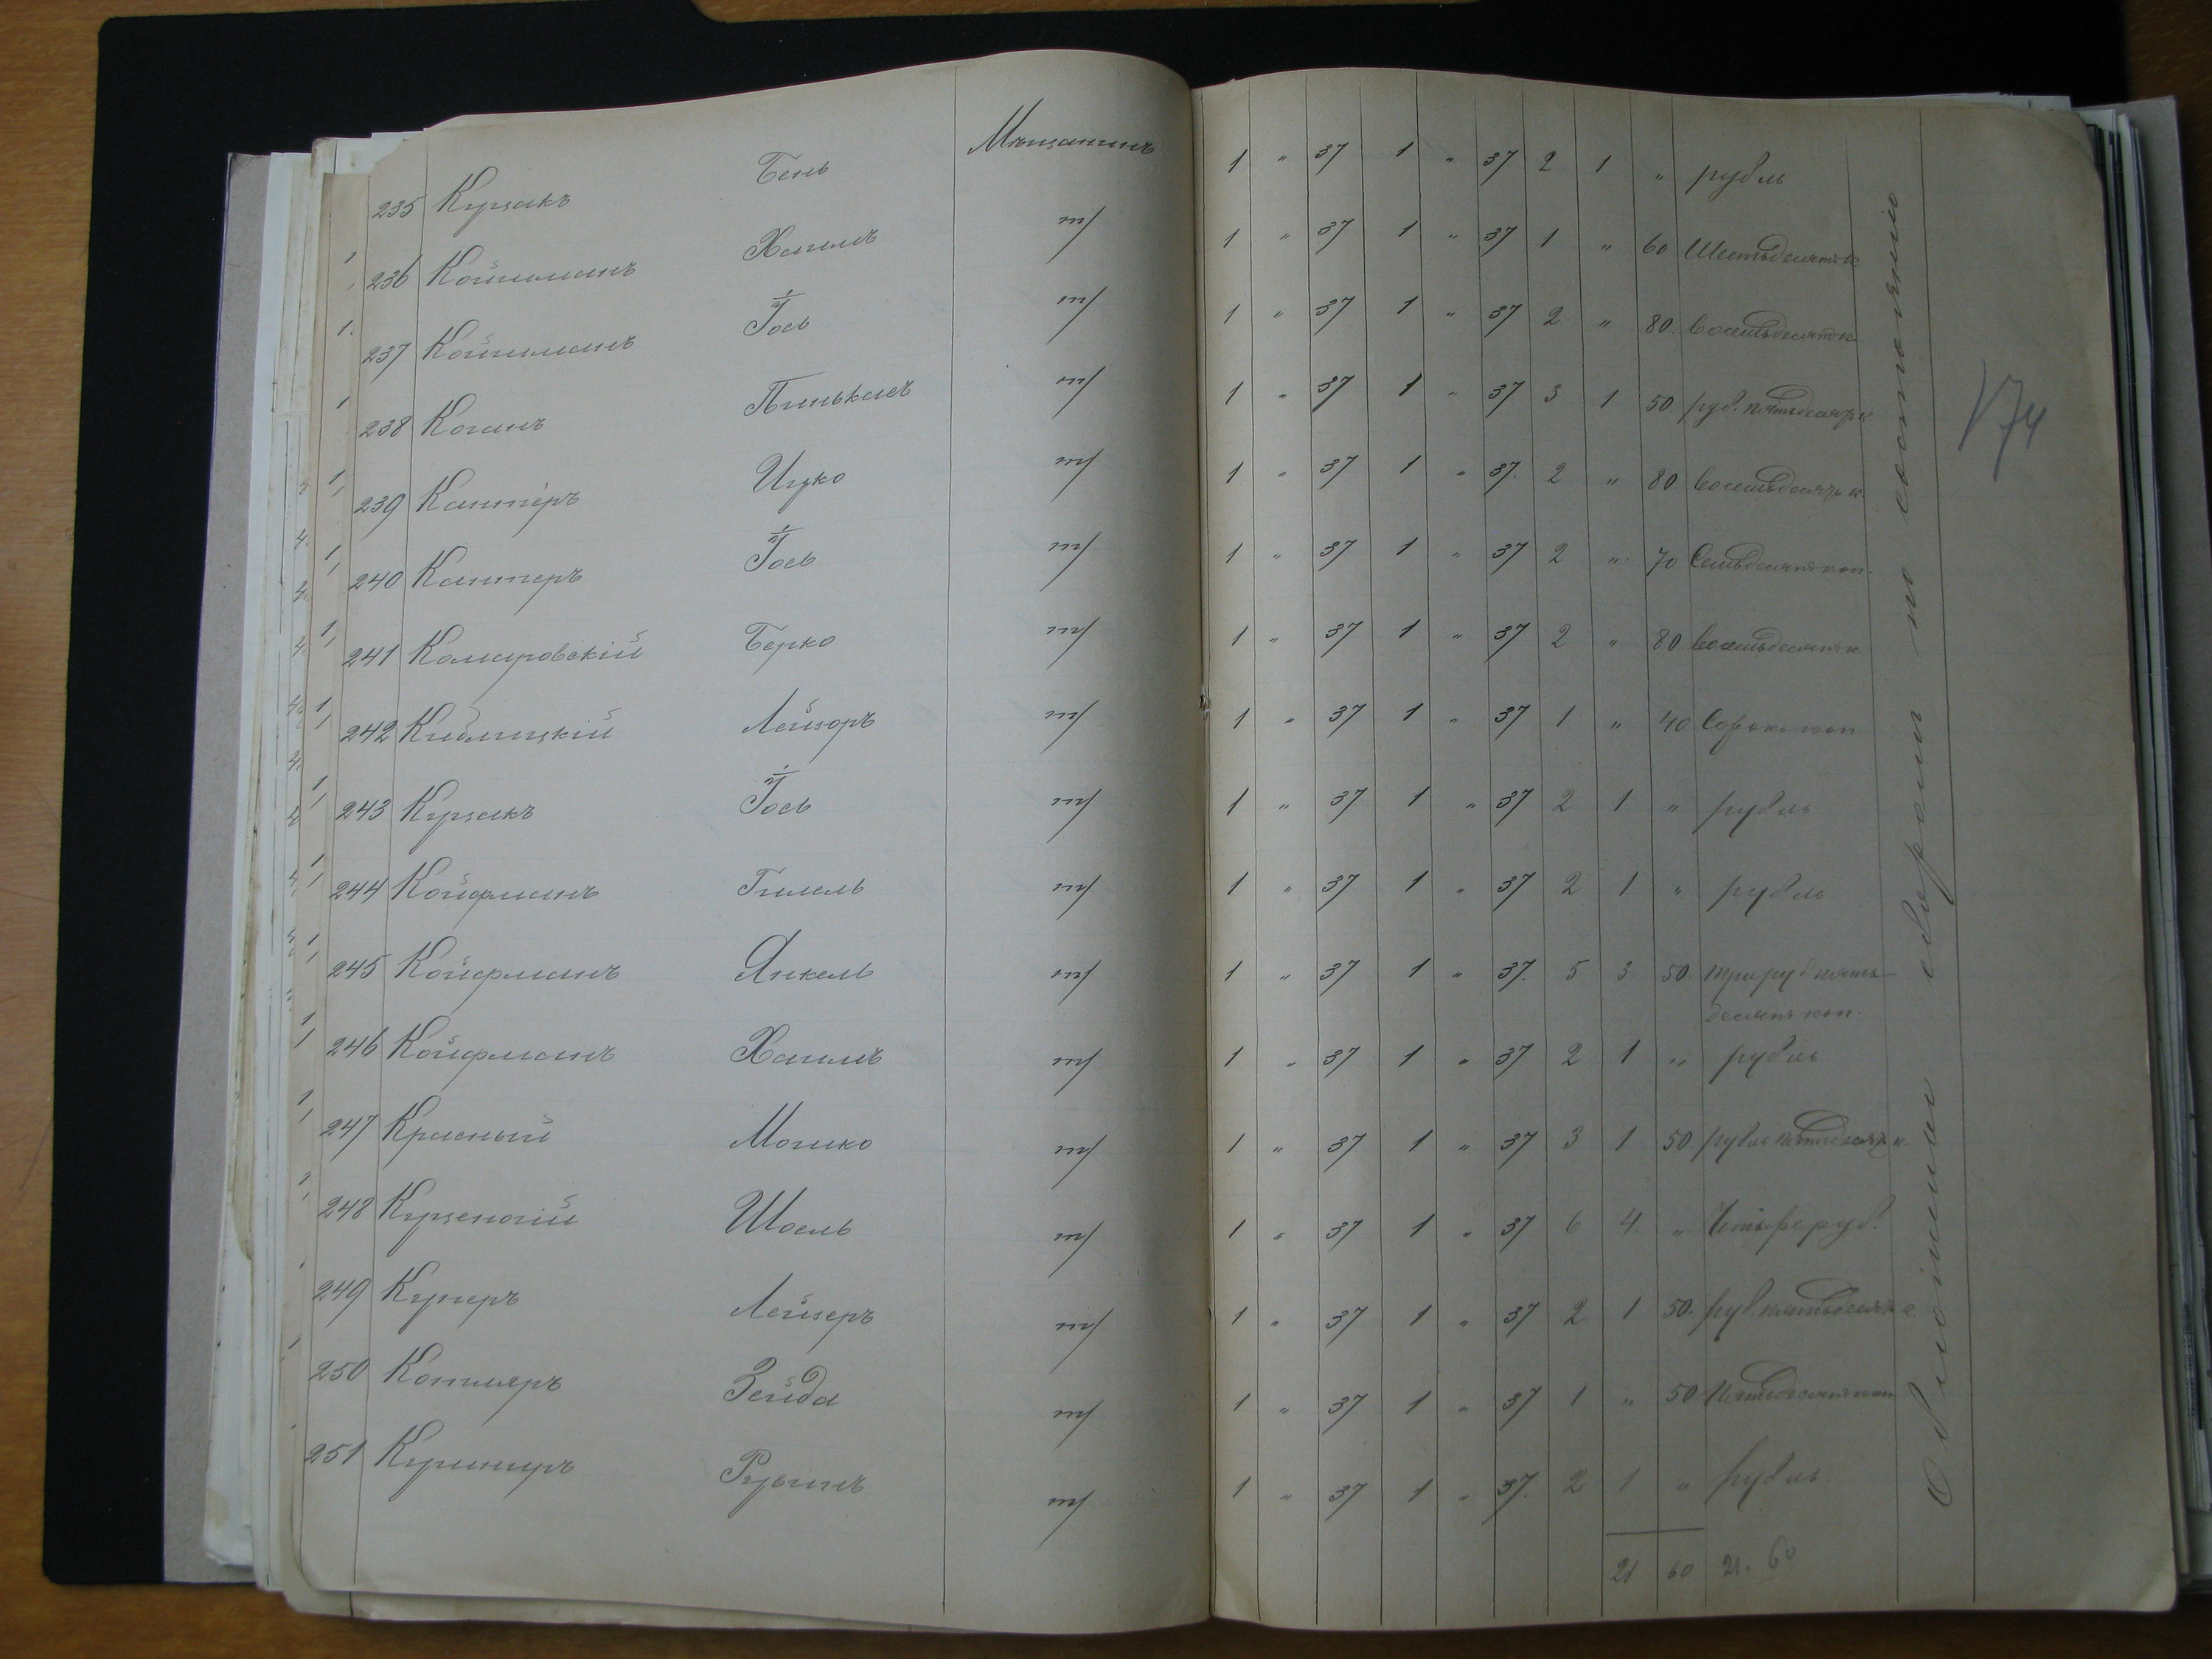 Мѣщанинъ
235 Куцакъ Бень 1 " 37 1 " 37 2 1 " рубль
236 Койшманъ Хаимъ т/ 1 " 37 1 " 37 1 " 60 Шестьдесятъ к
237 Койшманъ Іось т/ 1 " 37 1 " 37 2 " 80. восемьдесятъ к.
238 Коганъ Пинькасъ т/ 1 " 37 1 " 37 3 1 50. руб. пятьдесятъ к
239 Кантеръ Ицко т/ 1 " 37 1 " 37. 2 " 80 восемьдесятъ к.
240 Кантеръ Іось т/ 1 " 37 1 " 37 2 " 70 Семьдесятъ коп.
241 Комаровскій Берко т/ 1 " 37 1 " 37 2 " 80 восемьдесятъ к
242 Кидлицкій Лейзоръ т/ 1 " 37 1 " 37 1 " 40 Сорокъ коп
243 Куцакъ Іось т/ 1 " 37 1 " 37 2 1 " рубль
244 Койфманъ Гилель т/ 1 " 37 1 " 37. 2 1 " рубль
245 Койфманъ Янкель т/ 1 " 37 1 " 37. 5 3 50. три руб пять-
десятъ коп.
246 Койфманъ Хаимъ т/ 1 " 37 1 " 37 2 1 " рубль
247 Красный Мошко т/ 1 " 37 1 " 37 3 1 50 рубль пятьдесятъ к.
248 Куценогій Шоель т/ 1 " 37 1 " 37 6 4 " Четыре руб.
249 Куперъ Лейзеръ т/ 1 " 37 1 " 37 2 1 50. руб. пятьдесятъ к.
250 Котляръ Зейда т/ 1 " 37 1 " 37 1 " 50 Пятьдесятъ коп
251 Кушниръ Рувинъ т/ 1 " 37 1 " 37. 2 1 " рубль.
21 60 21. 60
по состоянію
174